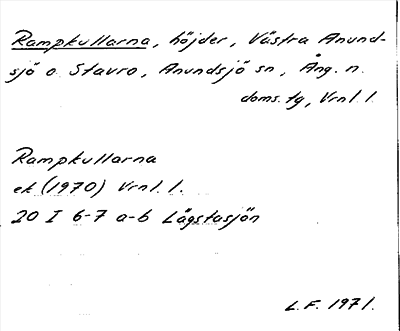 Rampkullarna, höjder, Västra Anund-
sjö o. Stavro, Anundsjö sn, Ång. n.
doms. tg, Vrnl. l.
Rampkullarna
ek (1970) Vrnl. l.
20 I 6-7 a-b Lägstasjön
L.F. 1971.